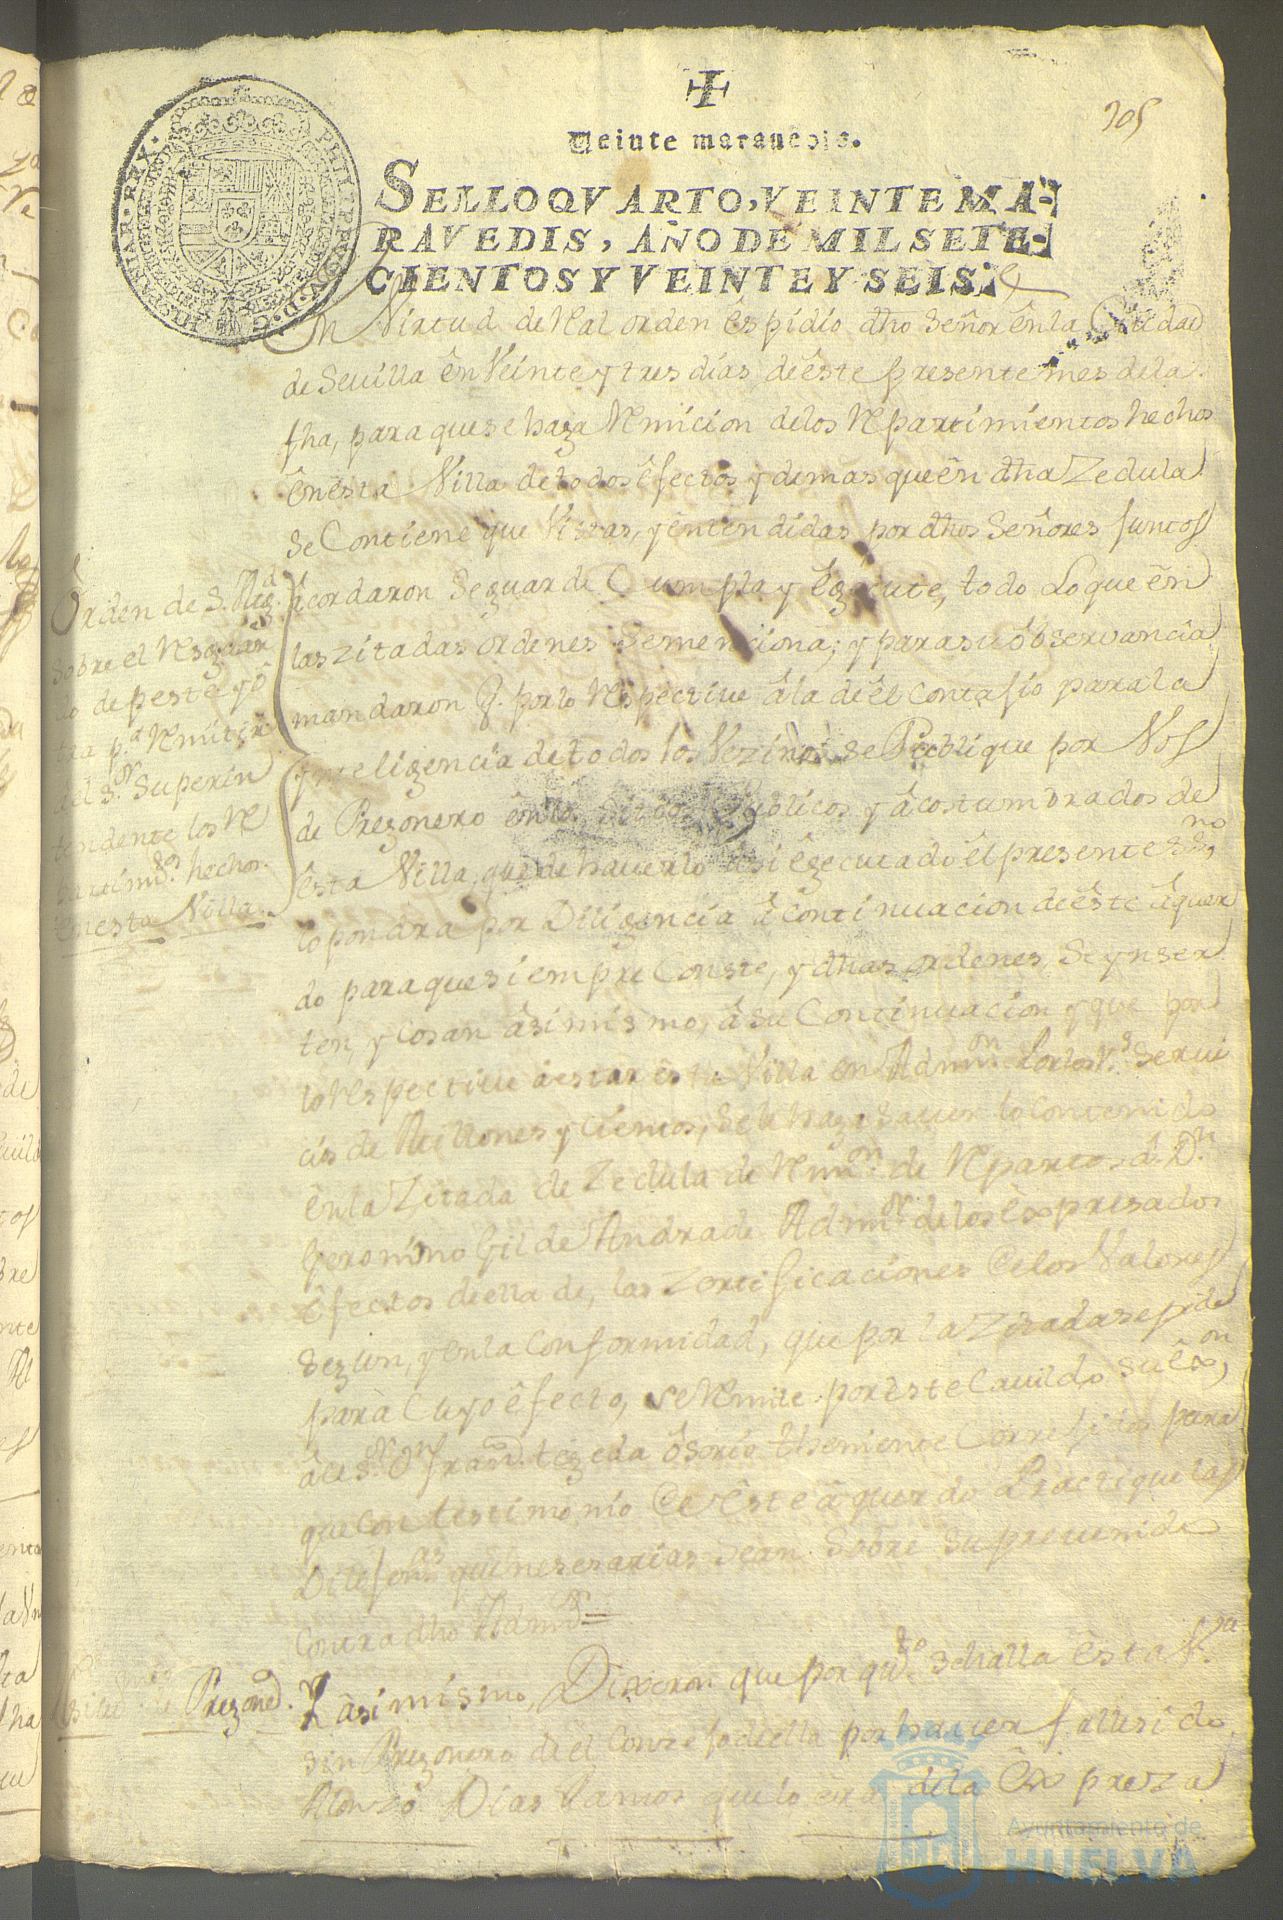 205
Veinte marauedis.
SELLO QVARTO, VEINTE MA-
RAVEDIS, AÑO DE MIL SETE-
CIENTOS Y VEINTE Y SEIS.
PHILIPPVS V D G HISPANIAR REX
En Virtud de Real orden espidio dho Señor en la Ciudad
de Seuilla en Veinte y tres dias de este presente mes de la
fha, para que se haga Remicion de los Repartimientos hechos
en esta Villa de todos efectos y demas que en dha Zedula
se Contiene que Vistas, y entendidas por dhos Señores Juntos
acordaron Se guarde Cumpla y Egecute, todo Lo que en
las zitadas ordenes se menciona; y para su obseruancia
mandaron q. por lo Respectiue a la de el contajio para la
ynteligencia de todos los Vezinos, se Publique por Vos
de Pregonero en los Sitios Publicos y acostumbrados de
esta Villa, que de hauerlo asi egecutado el presente SSno,
lo pondra por Diligencia a continuacion de este aquer
do para que siempre Conste, y dhas ordenes, Se ynser
ten, y cosan asimismo, a su Continuacion y que por
lo Respectiue a estar esta Villa en Admon Por los Rs Serui
cios de Millones y Cientos, se le haga sauer lo contenido
en la Zitada de Zedula de Rmon de Repartos a Dn
Geronimo Gil de Andrade Admor de los Expresados
Efectos de ella de, las Zertificaciones de los Valores
Segun, y en la Conformidad, que por la Zitada se pide
para Cuyo efecto, se Remite por este Cauildo su exon,
a el Sr Dn Franco tegeda osorio theniente Correjidor para
que Con testimonio de este aquerdo Practique las
Dilijenas que nesesarias sean Sobre su preuenido
Contra dho Admor =
Y asimismo, Dixeron que por qto se halla esta Va
sin Pregonero de el Consejo de ella por hauer fallesido
Alonzo Dias Ramos que lo era de la Expreza
Orden de S. Magd
sobre el Resguar
do de peste y o
tra pa Remitir
al Sr Superin
tendente los Re
partimtos hechos
en esta Villa.
de Pregono.
Ayuntamiento de
HUELVA